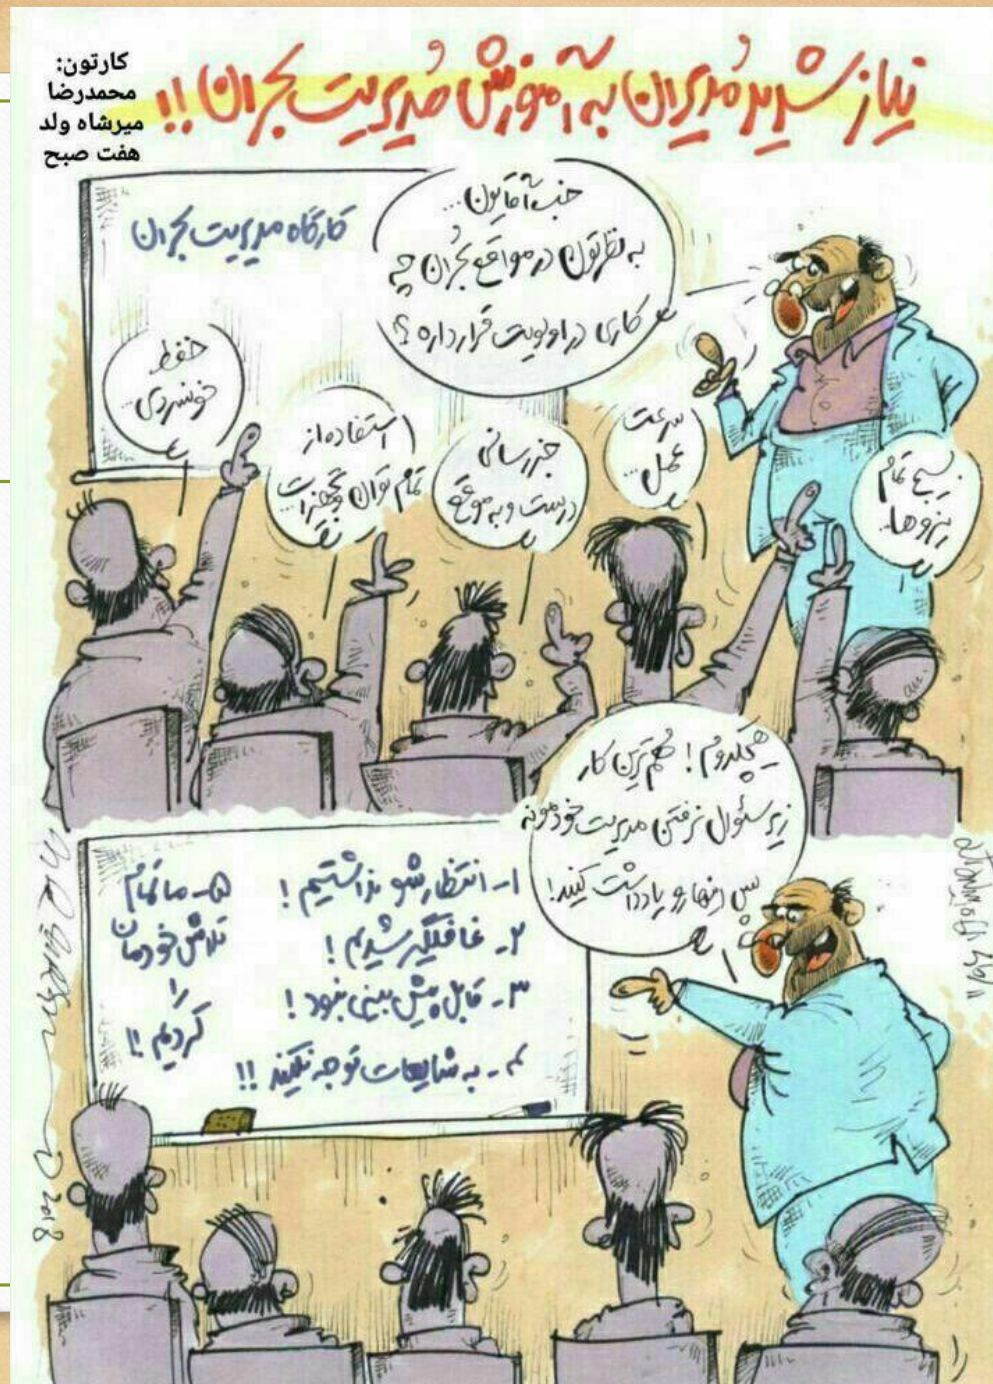 کارتون:
محمدرضا
میرشاه ولد
هفت صبح
نیاز شدید مُدیران به آموزش مُدیریت بحران !!
کارگاه مدیریت بحران
خب آقایون...
به نظرتون در مواقع بُحران چه
کاری در اولویت قرار داره ؟
حفظ
خونسردی...
استفاده از
تمام توان و تجهیزات...
خبر رسانی
درست و به موقع
سرعت
عمل...
بسیج تمام
نیروها...
هیچکدوم ! مهم ترین کار
زیر سئوال نرفتن مدیریت خودمونه
پس اینها رو یادداشت کنید !
۱- انتظارشو نداشتیم !
۲- غافلگیر شدیم !
۳- قابل پیش بینی نبود !
۴- به شایعات توجه نکنید !!
۵- ما تمام
تلاش خودمان
را
کردیم !!
2018